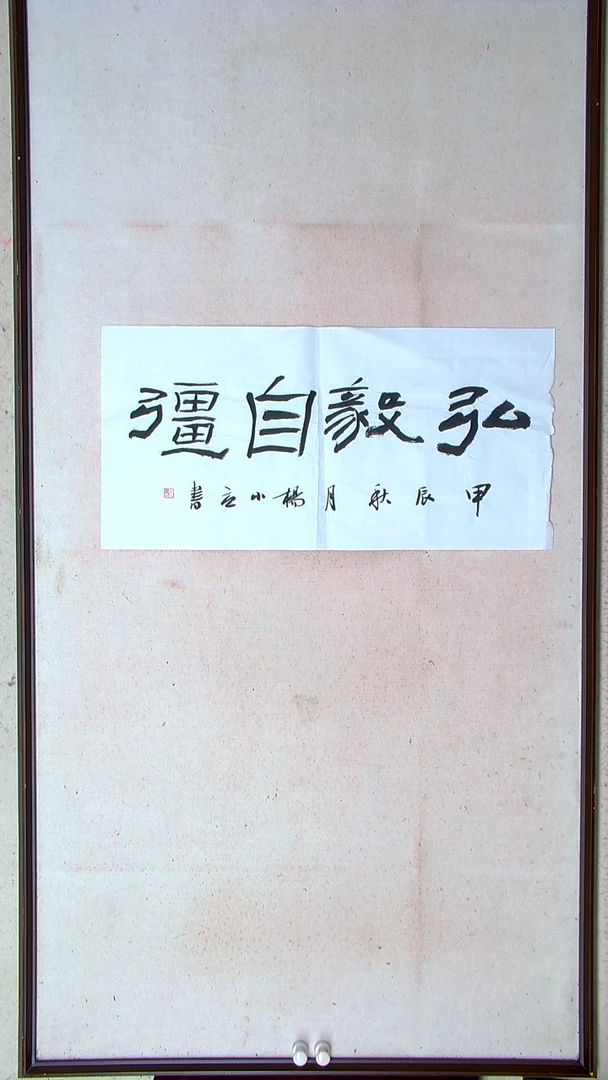 弘毅自彊
甲辰秋月楊小立書